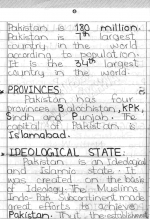 Pakistan is 180 million.
Pakistan is 7th largest
country in the world
according to population.
It is the 34th largest
country in the world.
PROVINCES:
Pakistan has four
provinces Balochistan, KPK,
Sindh and Punjab. The
capital of Pakistan is
Islamabad.
IDEOLOGICAL STATE:
Pakistan is an Ideological
and Islamic State. It
was created on the basis
of Ideology. The Muslims
Indo-Pak Subcontinent made
great efforts to achieve
Pakistan. Thus, the